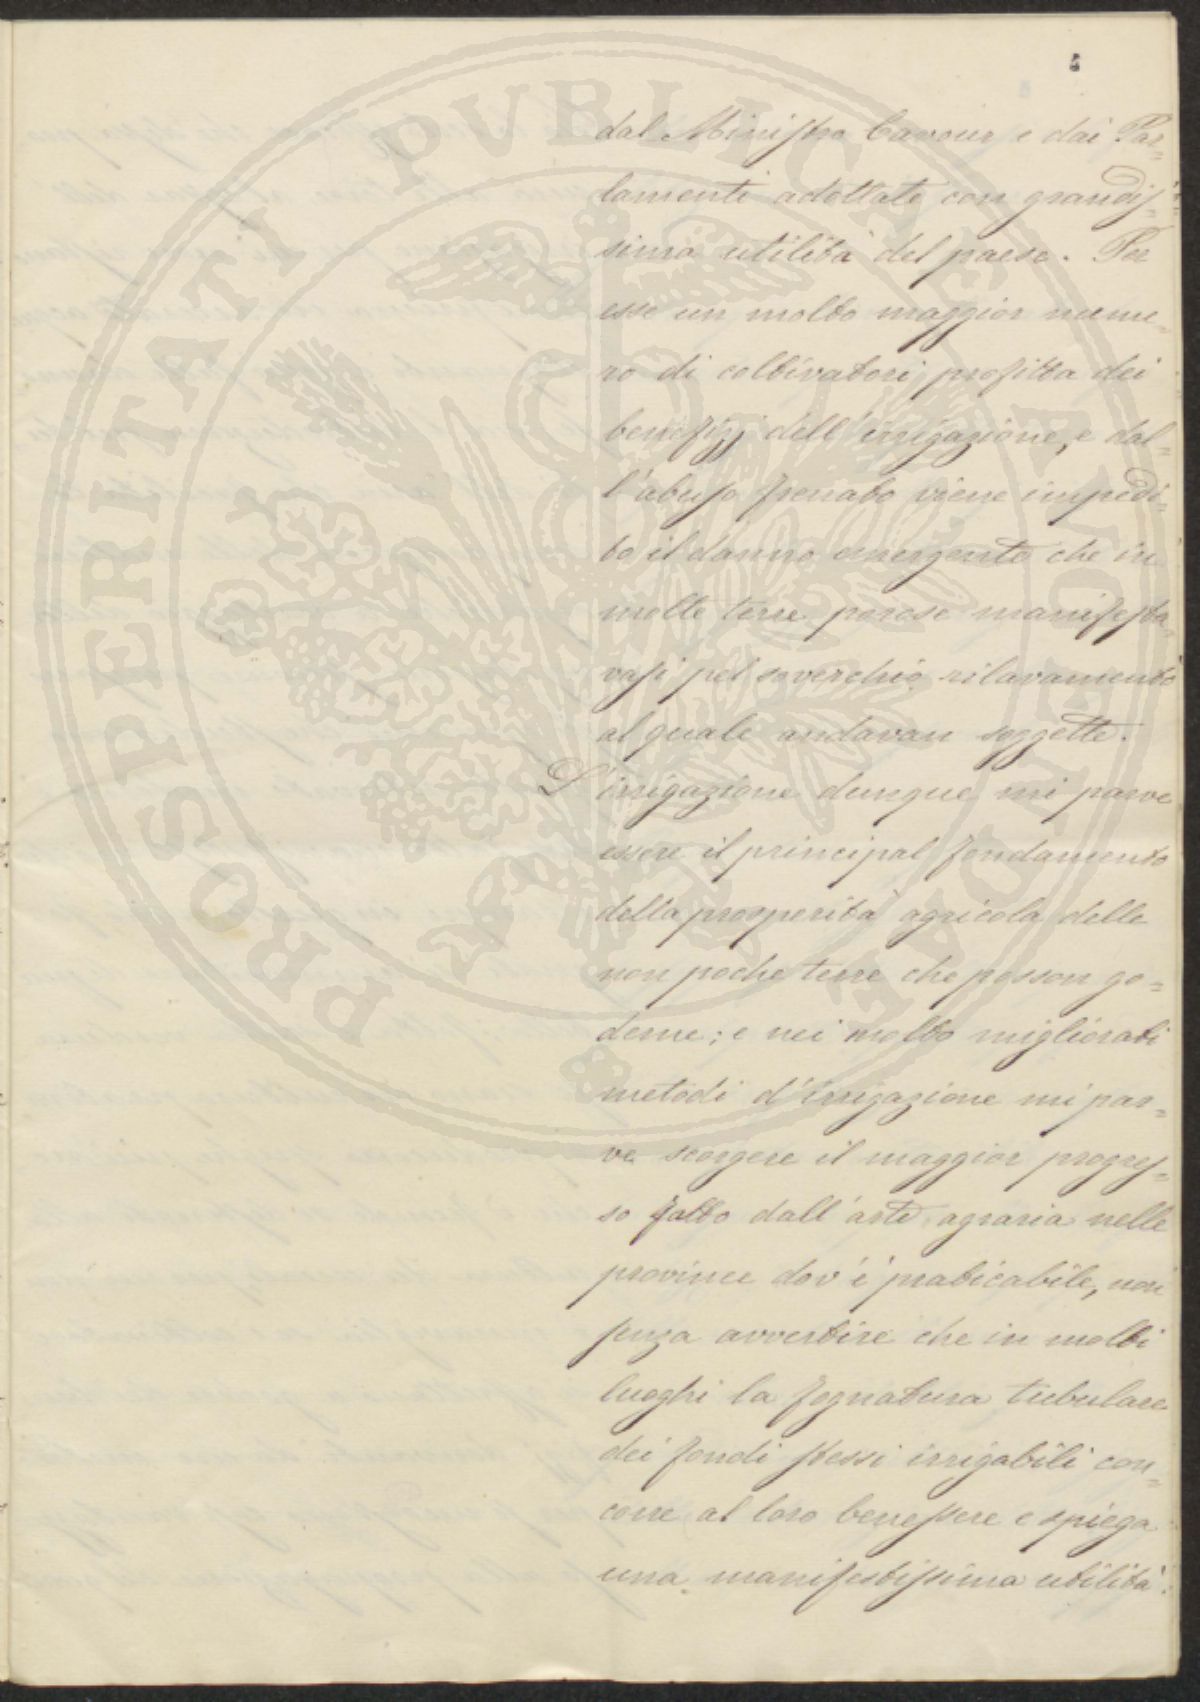 dal Ministro Cavour e dai Par=
lamenti adottate con grandis=
sima utilità del paese. Per
esse un molto maggior nume=
ro di coltivatori profitta dei
benefizj dell'irrigazione, e dal=
l'abuso frenato viene impedi=
to il danno emergente che in
molte terre porose manifesta=
vasi pel soverchio rilavamento
al quale andavan soggette.
L'irrigazione dunque mi parve
essere il principal fondamento
della prosperità agricola delle
non poche terre che posson go=
derne; e nei molto migliorati
metodi d'irrigazione mi par=
ve scorgere il maggior progres=
so fatto dall'arte agraria nelle
province dov'è praticabile, non
senza avvertire che in molti
luoghi la fognatura tubulare
dei fondi stessi irrigabili con=
corre al loro benessere e spiega
una manifestissima utilità.
PROSPERITATI PVBLICAE AVGENDAE